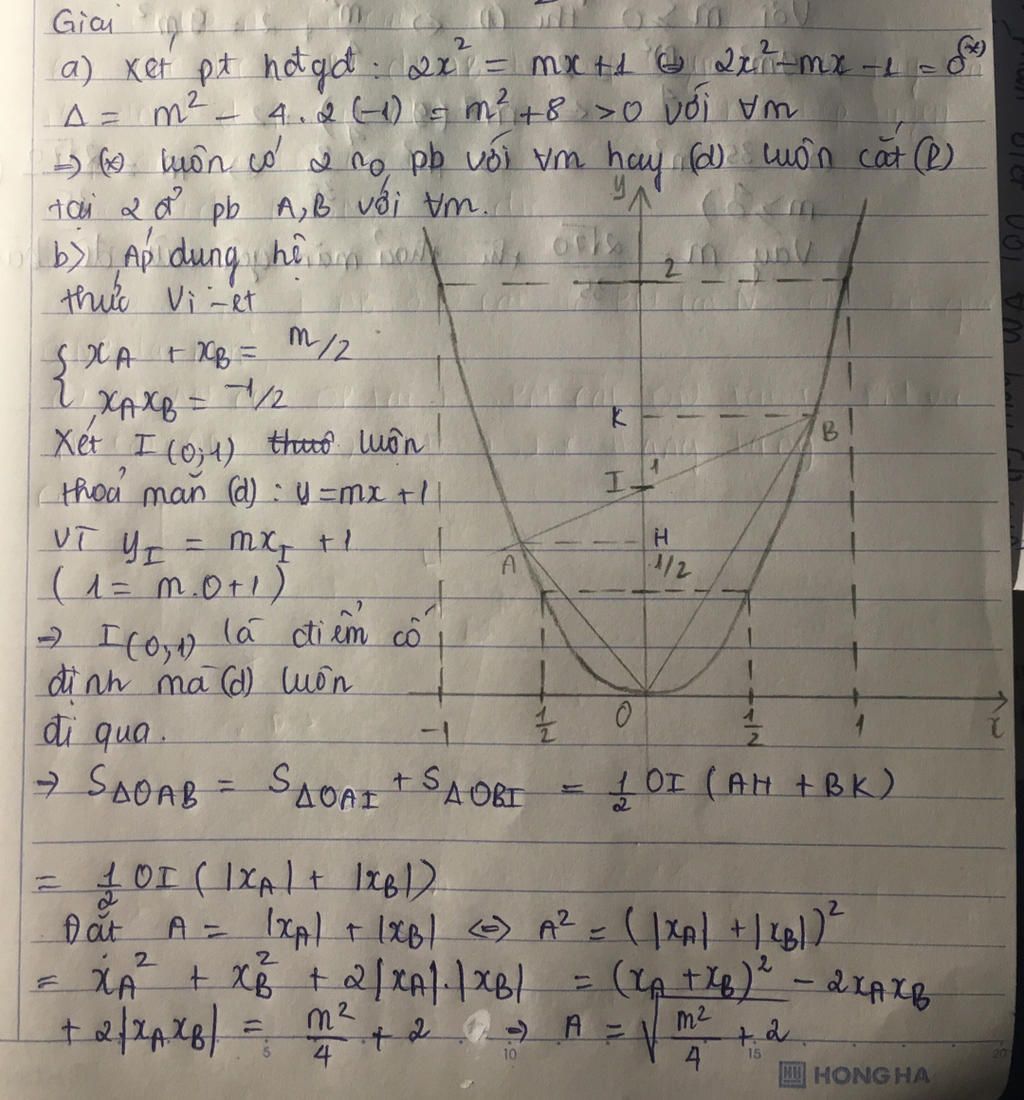 Giai
a) Xét pt hđgđ: 2x² = mx+1 ⇔ 2x²-mx-1 = 0 (*)
Δ = m² - 4.2(-1) = m²+8 >0 với ∀m
⇒ (*) luôn có 2 n₀ pb với ∀m hay (d) luôn cắt (P)
tại 2 đ' pb A,B với ∀m.
b) Áp dung hệ
thức Vi-et
{ x_A + x_B = m/2
x_A x_B = -1/2
Xét I(0;1) luôn
thoả mãn (d): y=mx+1
vì y_I = mx_I + 1
(1 = m.0+1)
⇒ I(0,1) là điểm cố
định mà (d) luôn
đi qua.
y
2
K
B
I 1
H
A
1/2
O
-1
1/2
1/2
1
x
⇒ S_ΔOAB = S_ΔOAI + S_ΔOBI = 1/2 OI (AH + BK)
= 1/2 OI (|x_A| + |x_B|)
Đặt A = |x_A| + |x_B| ⇔ A² = (|x_A| + |x_B|)²
= x_A² + x_B² + 2|x_A|.|x_B| = (x_A + x_B)² - 2x_A x_B
+ 2|x_A.x_B| = m²/4 + 2 ⇒ A = √(m²/4 + 2)
5 10 15 20
HONG HA